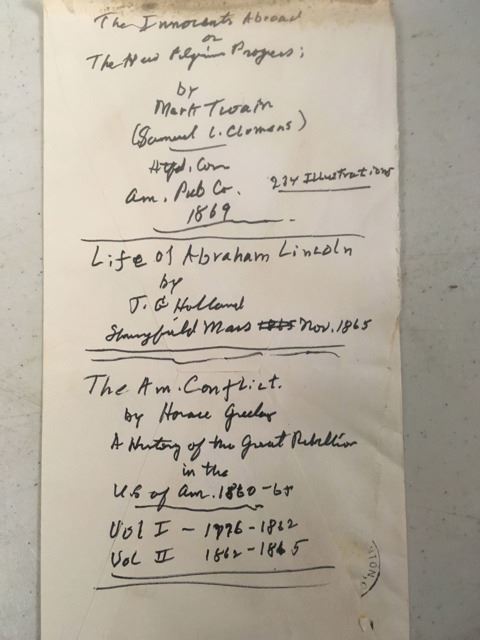 The Innocents Abroad
or
The New Pilgrims Progress;
by
Mark Twain
(Samuel L. Clemans)
Htfd. Con
Am. Pub Co.
234 Illustrations
1869
Life of Abraham Lincoln
by
J. G Holland
Springfield Mass 1865 Nov. 1865
The Am. Conflict.
by Horace Greeley
A History of the Great Rebellion
in the
U.S of Am. 1860-65
Vol I - 1776-1862
Vol II 1862-1865